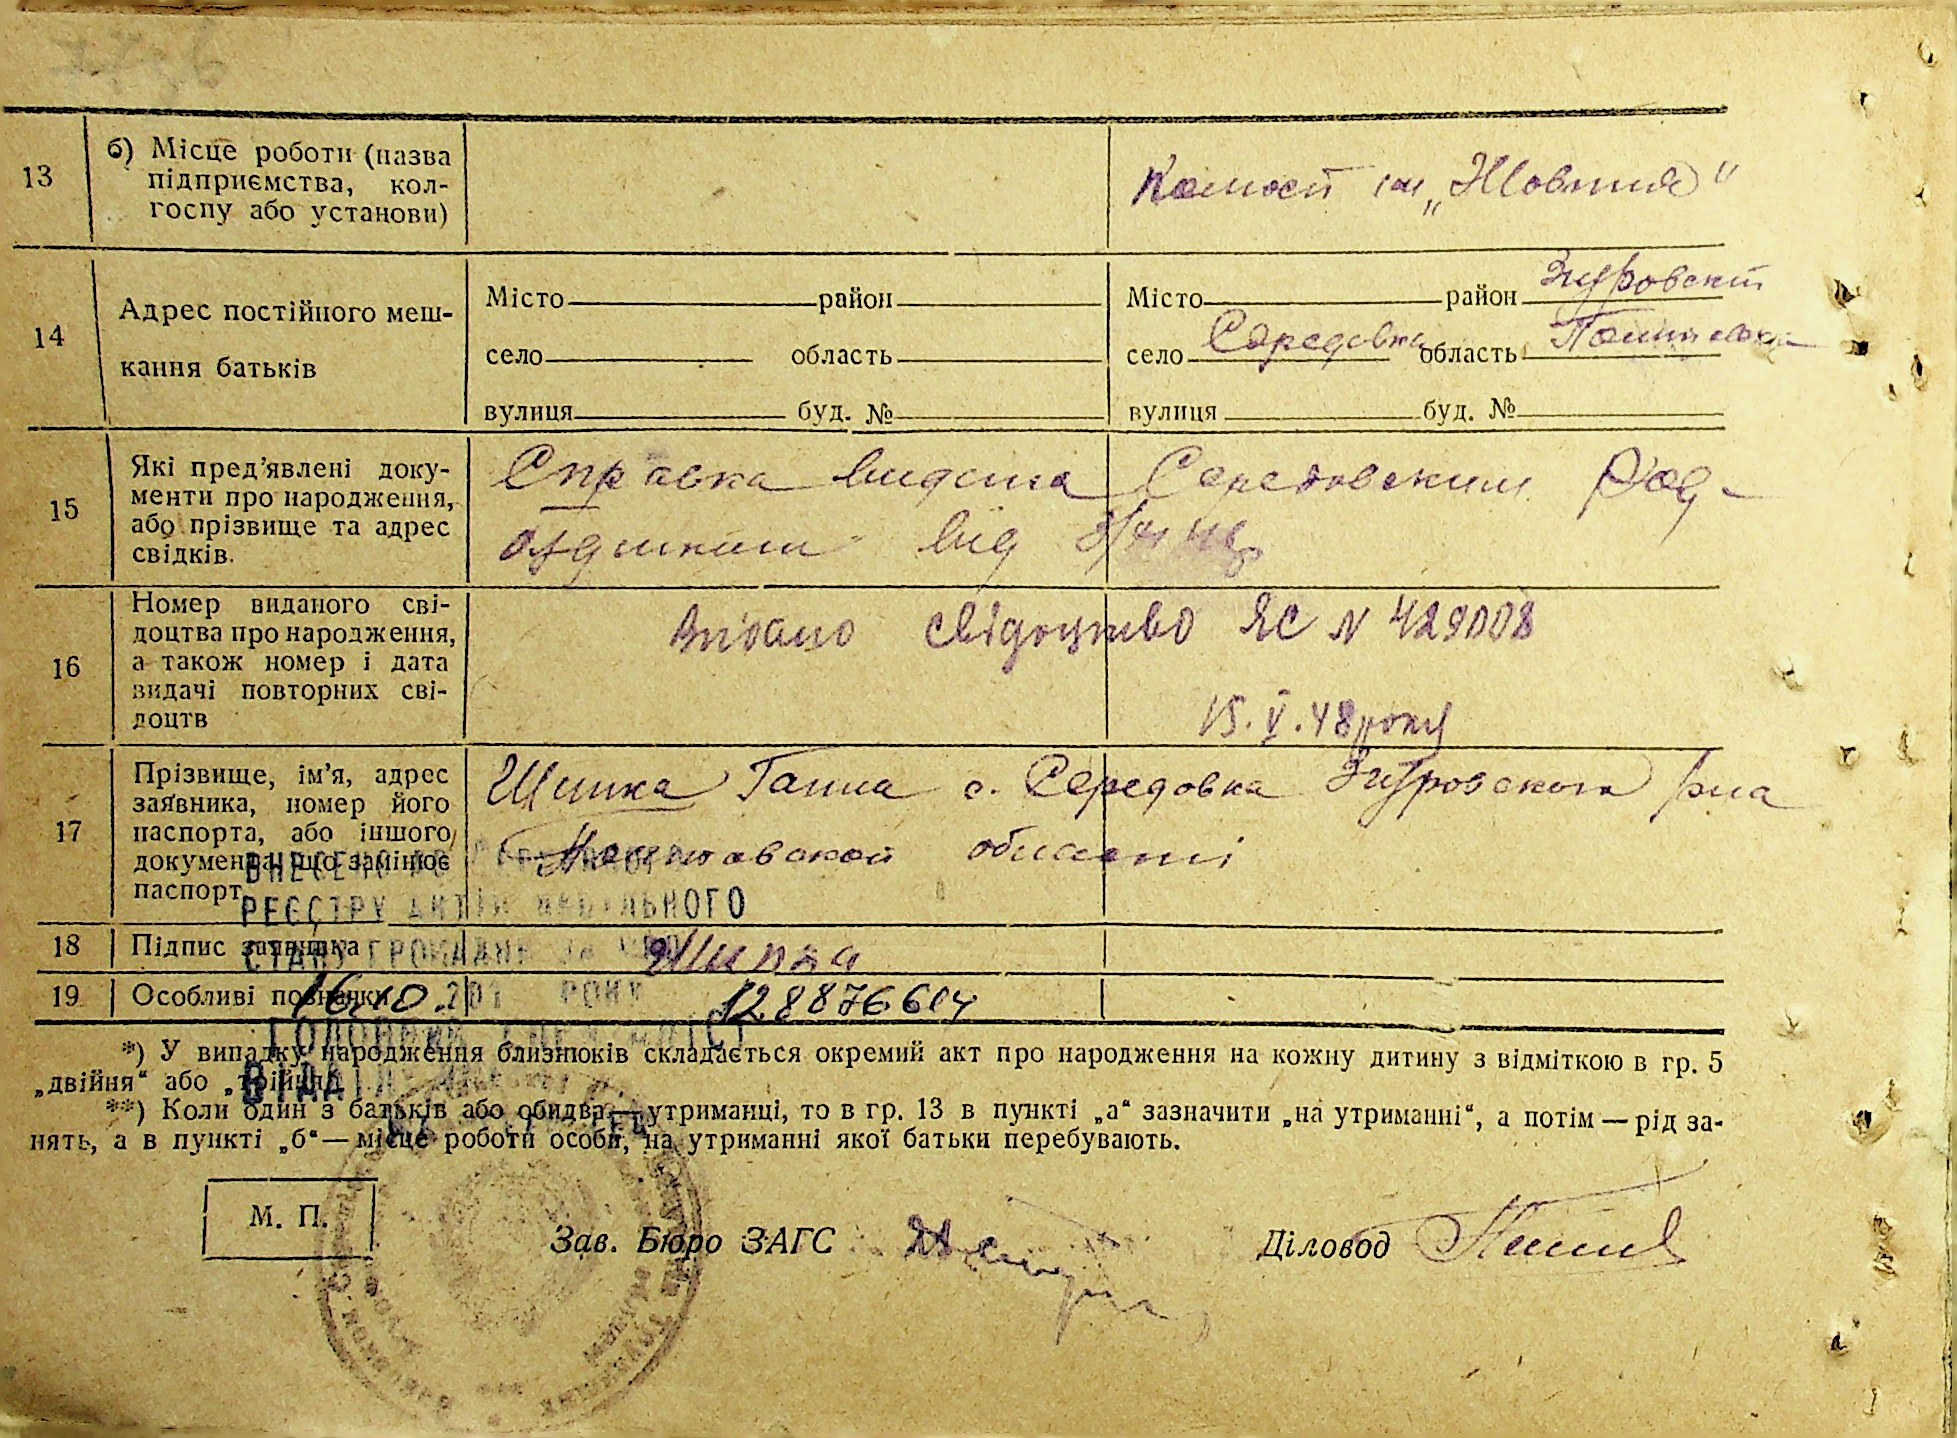 13
б) Місце роботи (назва
підприємства, кол-
госпу або установи)
„Жовтня"
14
Адрес постійного меш-
кання батьків
Місто район
село область
вулиця буд. №
Місто район Згуровский
село Середовка область Полтавская
вулиця буд. №
15
Які пред'явлені доку-
менти про народження,
або прізвище та адрес
свідків.
Справка видана Середовским Род-
від
16
Номер виданого сві-
доцтва про народження,
а також номер і дата
видачі повторних сві-
доцтв
Видано свідоцтво ЯС N 429008
15. V. 48 року
17
Прізвище, ім'я, адрес
заявника, номер його
паспорта, або іншого
документа, що замінює
паспорт
Шипка Ганна с. Середовка Згуровского рна
Полтавской области
ВНЕСЕНО ДО ДЕРЖАВНОГО
РЕЄСТРУ АКТІВ ЦИВІЛЬНОГО
СТАНУ ГРОМАДЯН ЗА
18
Підпис заявника
Шипка
19
Особливі познанки
16.10. 201 РОКУ
128876614
ГОЛОВНИЙ СПЕЦІАЛІСТ
ВІДДІЛУ
*) У випадку народження близнюків складається окремий акт про народження на кожну дитину з відміткою в гр. 5
„двійня" або „трійня"
**) Коли один з батьків або обидва — утриманці, то в гр. 13 в пункті „а" зазначити „на утриманні", а потім — рід за-
нять, а в пункті „б" — місце роботи особи, на утриманні якої батьки перебувають.
М. П.
Зав. Бюро ЗАГС
Діловод